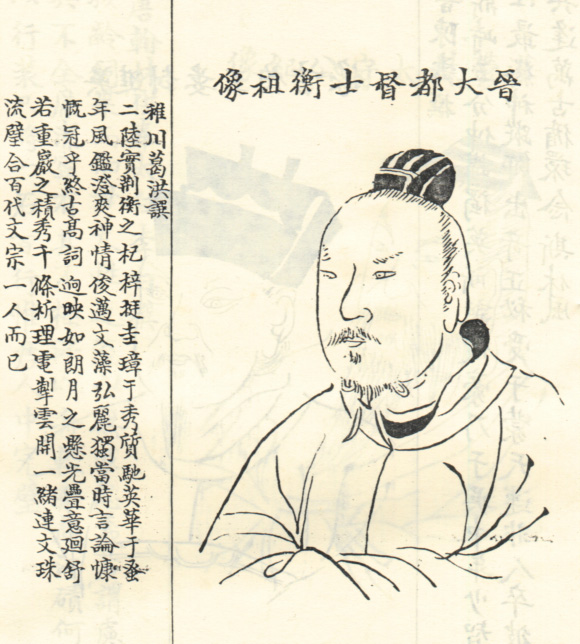 晉大都督士衡祖像
稚川葛洪譔
二陸實荆衡之杞梓挺圭璋于秀質馳英華于蚤
年風鑑澄爽神情俊邁文藻弘麗獨當時言論慷
慨冠乎終古高詞迥映如朗月之懸光疊意迴舒
若重巖之積秀千條析理電掣雲開一緒連文珠
流璧合百代文宗一人而已